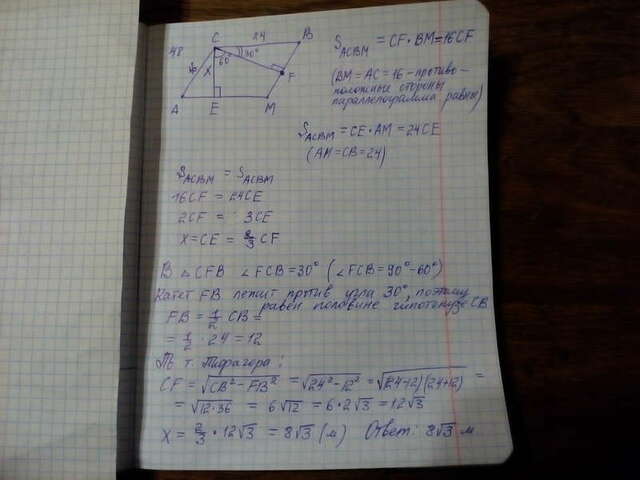 48
C 24 B
60° 30°
16 x
F
A E M
S ACBM = CF · BM = 16CF
(BM = AC = 16 - противо-
положные стороны
параллелограмма равны)
S ACBM = CE · AM = 24CE
(AM = CB = 24)
S ACBM = S ACBM
16CF = 24CE
2CF = 3CE
x = CE = 2/3 CF
В △ CFB ∠FCB = 30° (∠FCB = 90° - 60°)
Катет FB лежит против угла 30°, поэтому
равен половине гипотенузе CB
FB = 1/2 CB =
= 1/2 · 24 = 12
По т. Пифагора:
CF = √(CB² - FB²) = √(24² - 12²) = √((24-12)(24+12)) =
= √(12·36) = 6√12 = 6·2√3 = 12√3
x = 2/3 · 12√3 = 8√3 (м) Ответ: 8√3 м